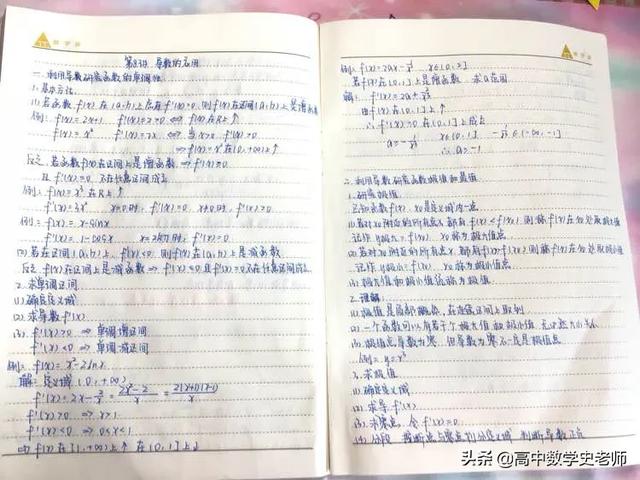 第3讲 导数的应用
一、利用导数研究函数的单调性
1. 基本方法
(1) 若函数 f(x) 在 (a,b) 上 f'(x)>0, 则 f(x) 在区间 (a,b) 上是增函数
例: f(x)=2x+1 f'(x)=2>0 ⇒ f(x) 在 R 上↑
f(x)=x² f'(x)=2x ⇒ 当 x>0 f'(x)>0
⇒ f(x)=x² 在 (0,+∞) 上↑
反之, 若函数 f(x) 在区间上是增函数 ⇒ f'(x)≥0
且 f'(x)=0 不在任意区间成立
例1: f(x)=x³ 在 R 上↑
f'(x)=3x² x=0时, f'(x)=0 x≠0时, f'(x)>0
例2: f(x)=x-sinx
f'(x)=1-cosx x=2kπ时, f'(x)=0
(2) 若在区间 (a,b) 上, f'(x)<0, 则 f(x) 在 (a,b) 上是减函数
反之, f(x) 在区间上是减函数 ⇒ f'(x)≤0 且 f'(x)=0 不在任意区间成立
2. 求单调区间
(1) 确定定义域
(2) 求导数 f'(x)
(3) f'(x)>0 ⇒ 单调增区间
f'(x)<0 ⇒ 单调减区间
例: f(x)=x²-2lnx
解: 定义域 (0,+∞)
f'(x)=2x-2/x=(2x²-2)/x=2(x+1)(x-1)/x
f'(x)>0 ⇒ x>1
f'(x)<0 ⇒ 0<x<1
f(x) 在 [1,+∞) 上↑ 在 (0,1] 上↓
f(x) 在 (0,1] 上是增函数, 求 a 范围
由 f(x) 在 (0,1] 上↑
∴ f'(x)≥0 在 (0,1] 上成立
∴ a≥-1
二、利用导数研究函数极值和最值
1. 研究极值
已知函数 f(x), x0 是定义域内一点
(1) 若对 x0 附近的所有点 x 都有 f(x)<f(x0) 则称 f(x) 在 x0 处取极大值
记作 y极大=f(x0) x0 称为极大值点
(2) 若对 x0 附近的所有点 x, 都有 f(x)>f(x0) 则称 f(x) 在 x0 处取极小值
记作 y极小=f(x0) x0 称为极小值点
(3) 极大值和极小值统称为极值
2. 理解:
(1) 极值是局部概念, 在定义区间上取到
(2) 一个函数可以有若干个极大值和极小值 无必然大小关系
(3) 极值点导数为零, 但导数为零不一定是极值点
例: y=x³
3. 求极值
(1) 确定定义域
(2) 求导 f'(x)
(3) 求零点, 令 f'(x)=0
判断导数正负
头条 @高中数学史老师